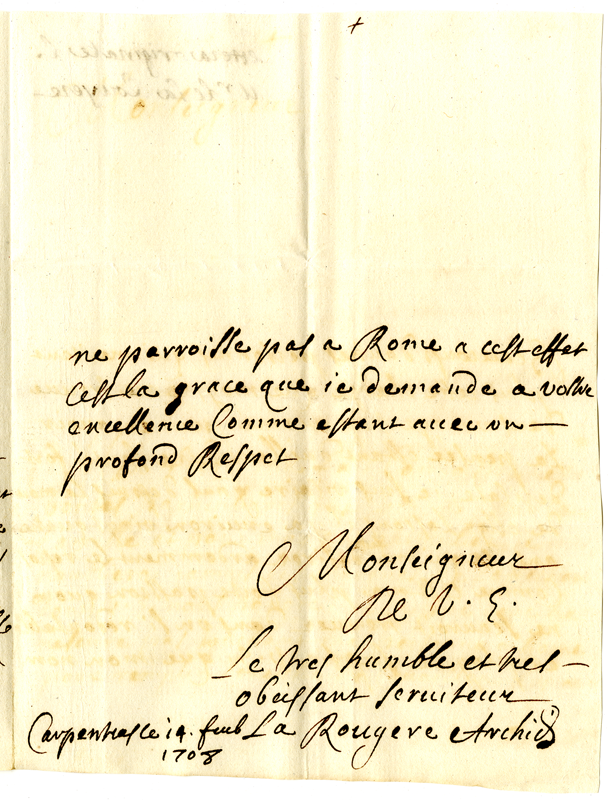 ne parroisse pas a Rome a cest effet
cest la grace que ie demande a vostre
excellence Comme estant avec un
profond Respet
Monseigneur
De V. E.
Le tres humble et tres
obeissant serviteur
Carpentras ce 14. feub La Rougere Archid
1708